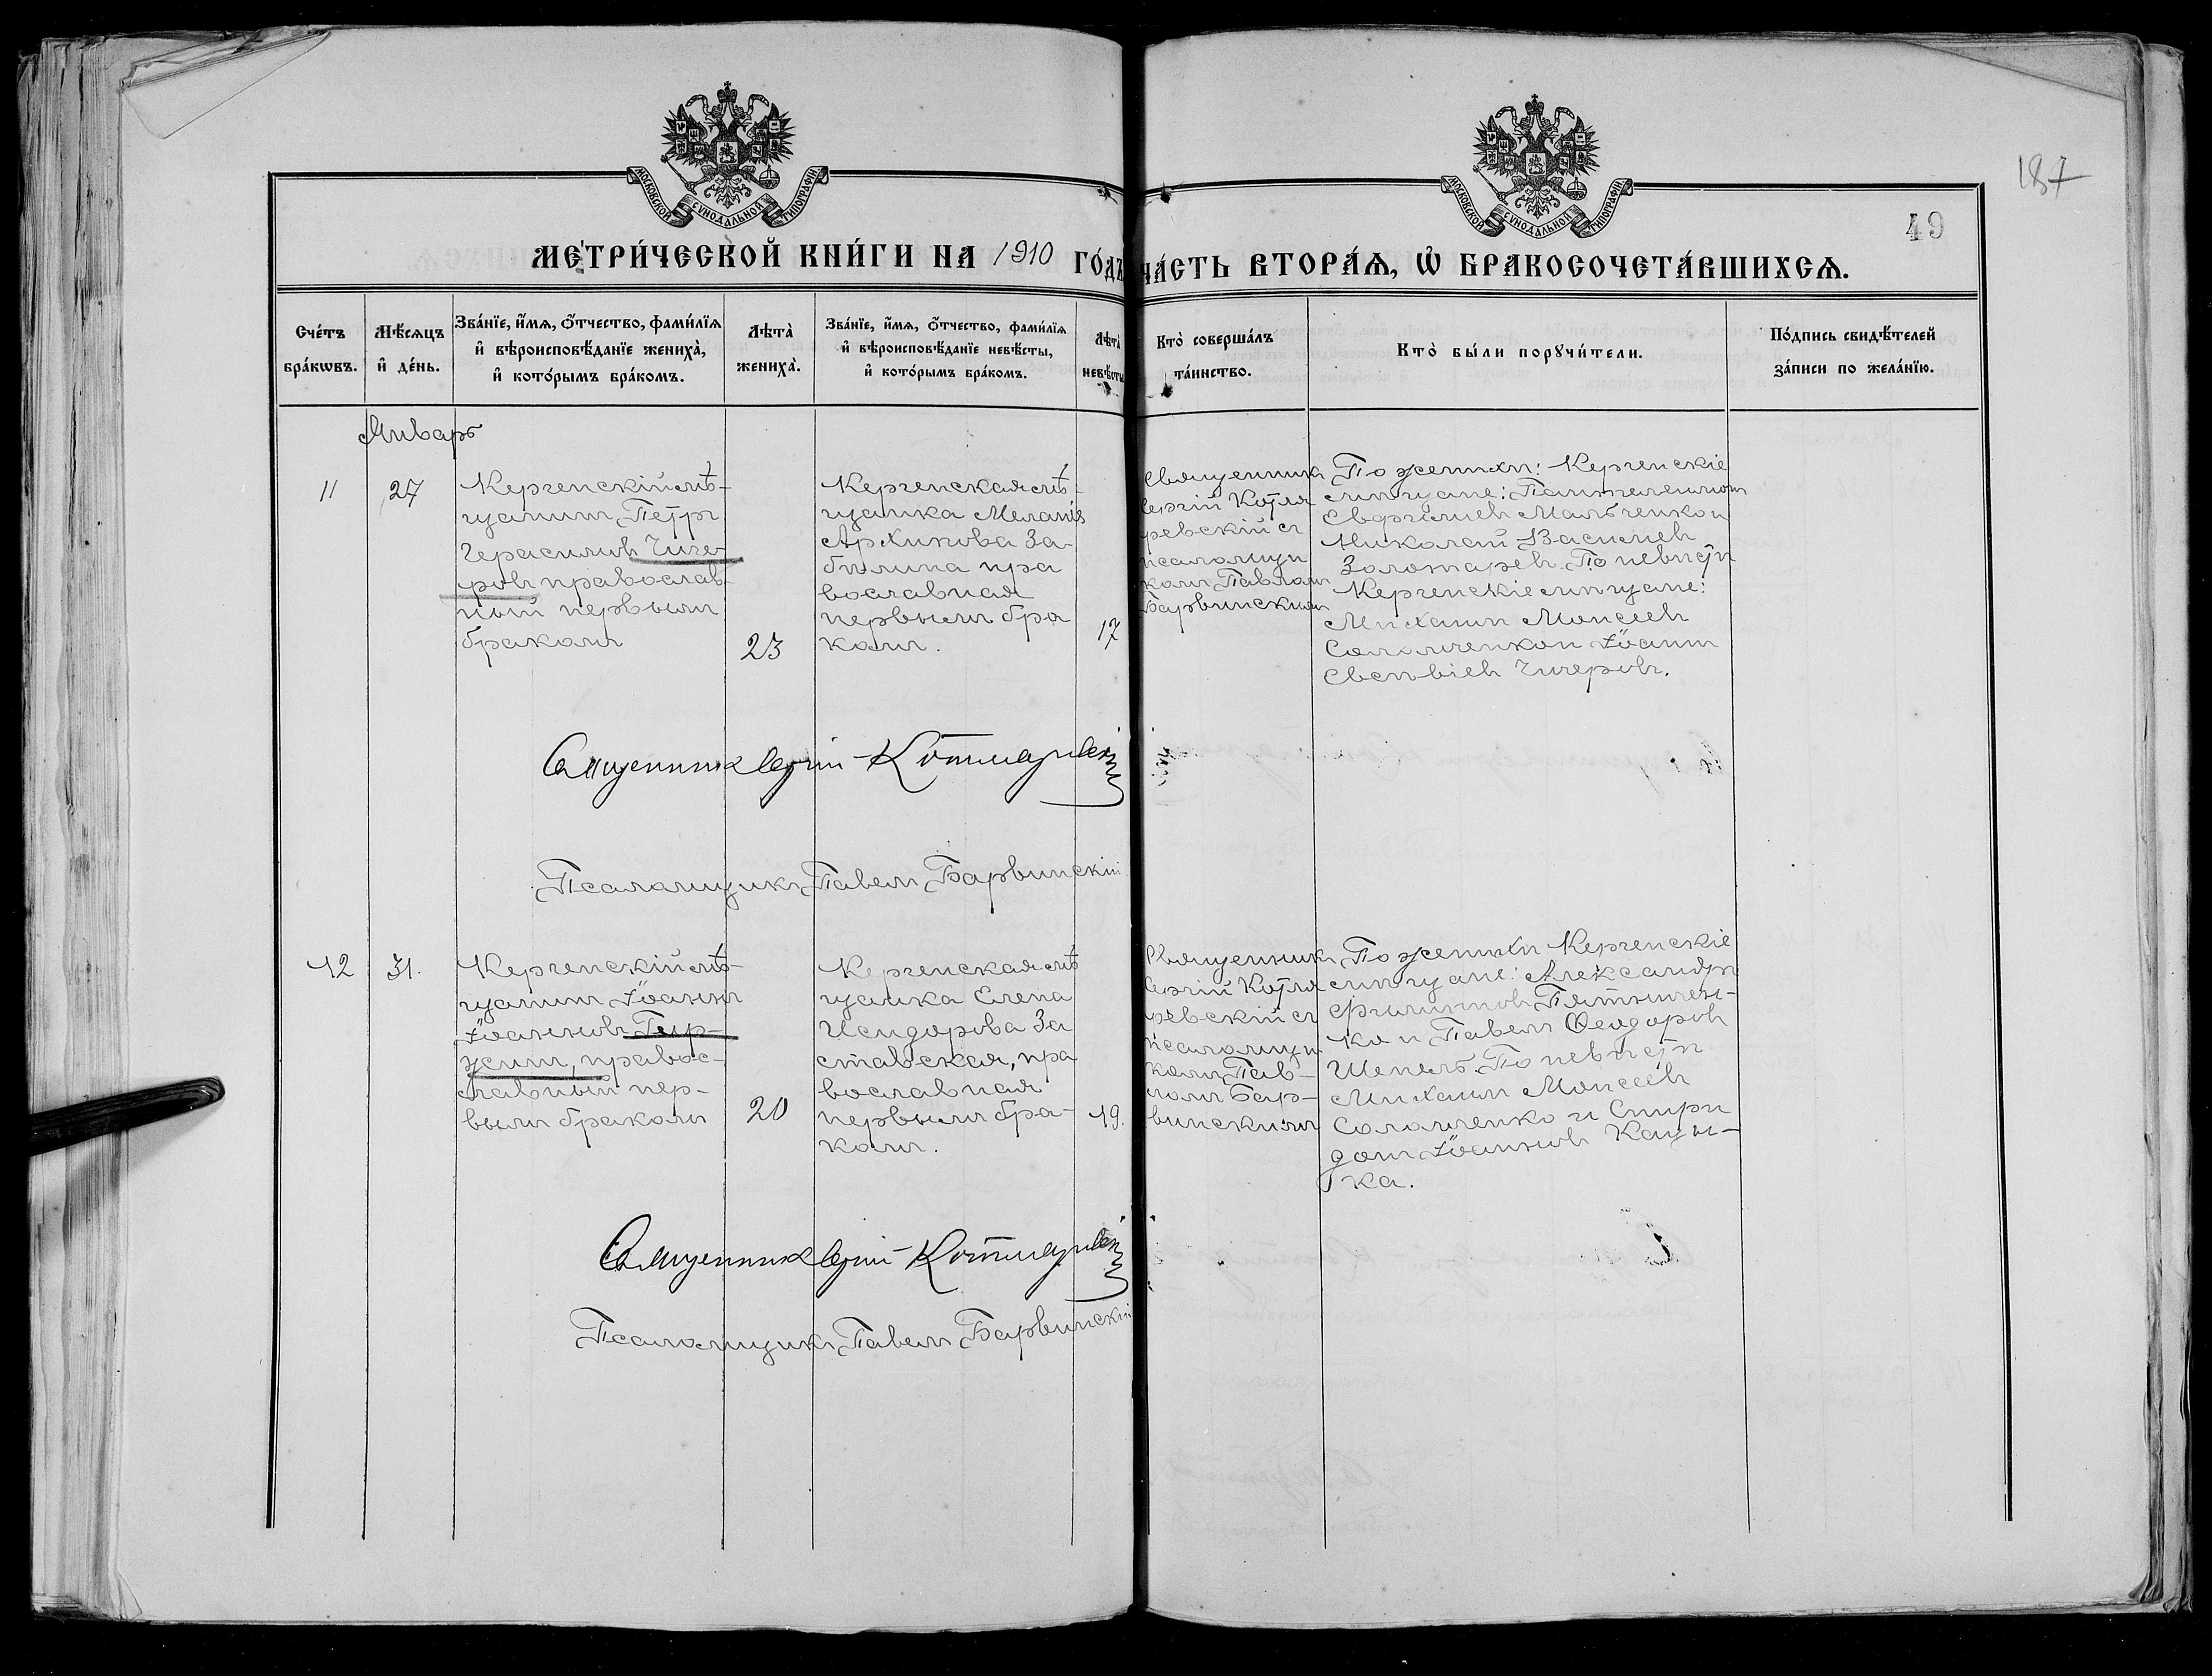 187
49
МОСКОВСКОЙ СУНОДАЛЬНОЙ ТИПОГРАФІИ
МОСКОВСКОЙ СУНОДАЛЬНОЙ ТИПОГРАФІИ
МЕ́ТРИ́ЧЕСКОЙ КНИ́ГИ НА 1910 ГО́ДЪ
ЧА́СТЬ ВТОРА́Ѧ, Ѽ БРАКОСОЧЕТА́ВШИХСѦ.
Сче́тъ
бра́кѡвъ.
Мѣ́сѧцъ
и҆ де́нь.
Зва́нїе, и҆́мѧ, ѻ҆́тчество, фами́лїѧ
и҆ вѣроисповѣ́данїе жениха̀,
и҆ кото́рымъ бра́комъ.
Лѣта̀
жениха̀.
Зва́нїе, и҆́мѧ, ѻ҆́тчество, фами́лїѧ
и҆ вѣроисповѣ́данїе невѣ́сты,
и҆ кото́рымъ бра́комъ.
Лѣта̀
невѣ́сты
Кто̀ соверша́лъ
та́инство.
Кто̀ бы́ли порꙋчи́тели.
По́дпись свидѣ́телей
за́писи по жела́нїю.
Январь
11
27
Керченскій мѣ-
щанинъ Петръ
Герасимовъ Чиче-
ровъ православ-
ный первымъ
бракомъ
23
Керченская мѣ-
щанка Меланія
Архипова За-
билина пра
вославная
первымъ бра
комъ.
17
Священникъ
Сергій Котля
ревскій съ
псаломщи
комъ Павломъ
Барвинскимъ
По женихѣ: Керченскіе
мѣщане: Пантелеимонъ
Евфиміевъ Мальченко и
Николай Васильевъ
Золотаревъ. По невѣстѣ
Керченскіе мѣщане:
Михаилъ Моисеевъ
Соломченко и Іоаннъ
Евсѣвіевъ Чичеровъ.
Священникъ Сергій Котляревскій
Псаломщикъ Павелъ Барвинскій
12
31.
Керченскій мѣ-
щанинъ Іоаннъ
Іоанновъ Гер-
жинъ, правос-
лавный пер-
вымъ бракомъ
20
Керченская мѣ
щанка Елена
Исидорова За
ставская, пра
вославная
первымъ бра-
комъ.
19.
Священникъ
Сергій Котля
ревскій съ
псаломщи
комъ Пав-
ломъ Бар-
винскимъ
По женихѣ Керченскіе
мѣщане: Александръ
Филипповъ Пятничен-
ко и Павелъ Ѳеодоровъ
Шепель. По невѣстѣ
Михаилъ Моисеевъ
Соломченко и Спири
донъ Іоанновъ Кацы-
ка.
Священникъ Сергій Котляревскій
Псаломщикъ Павелъ Барвинскій